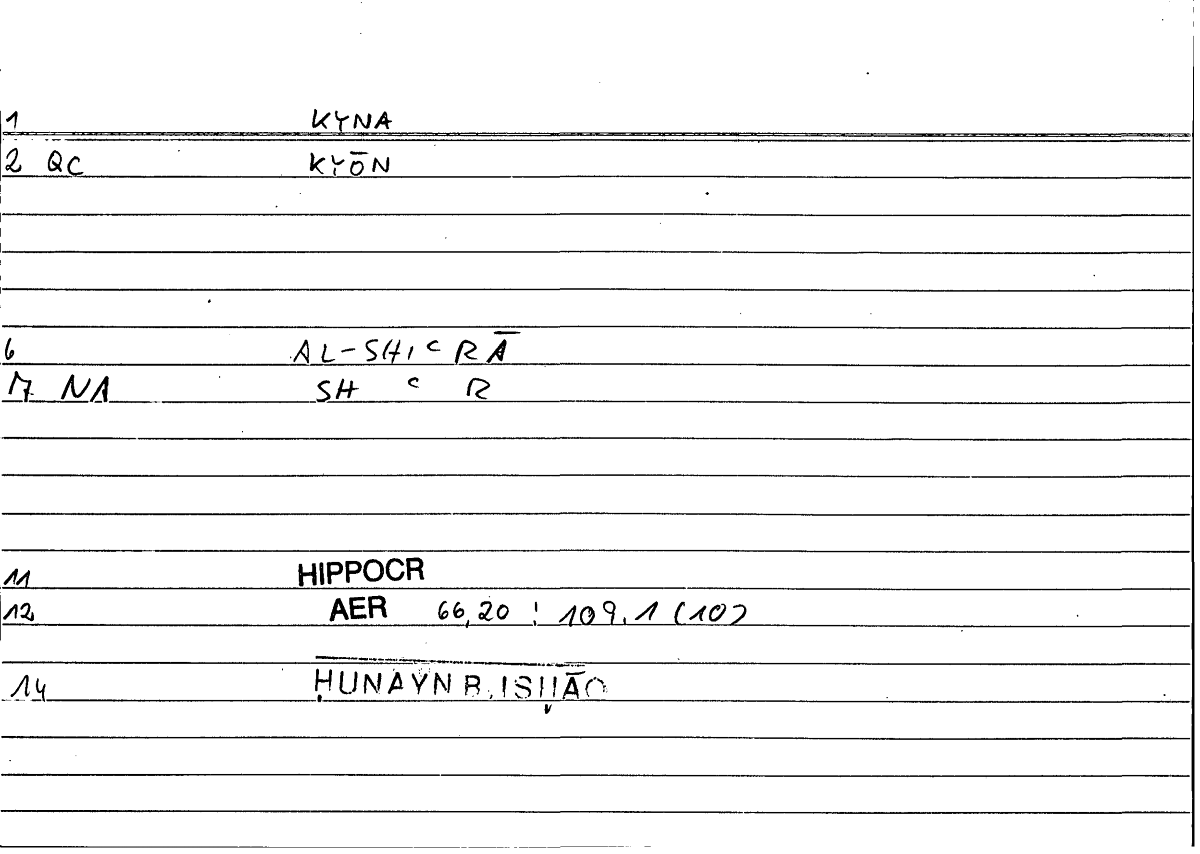 1 KYNA
2 QC KYŌN
6 AL-SHIʿRĀ
7 NA SH ʿ R
11 HIPPOCR
12 AER 66,20 : 109.1 (10)
14 ḤUNAYN B. ISḤĀQ